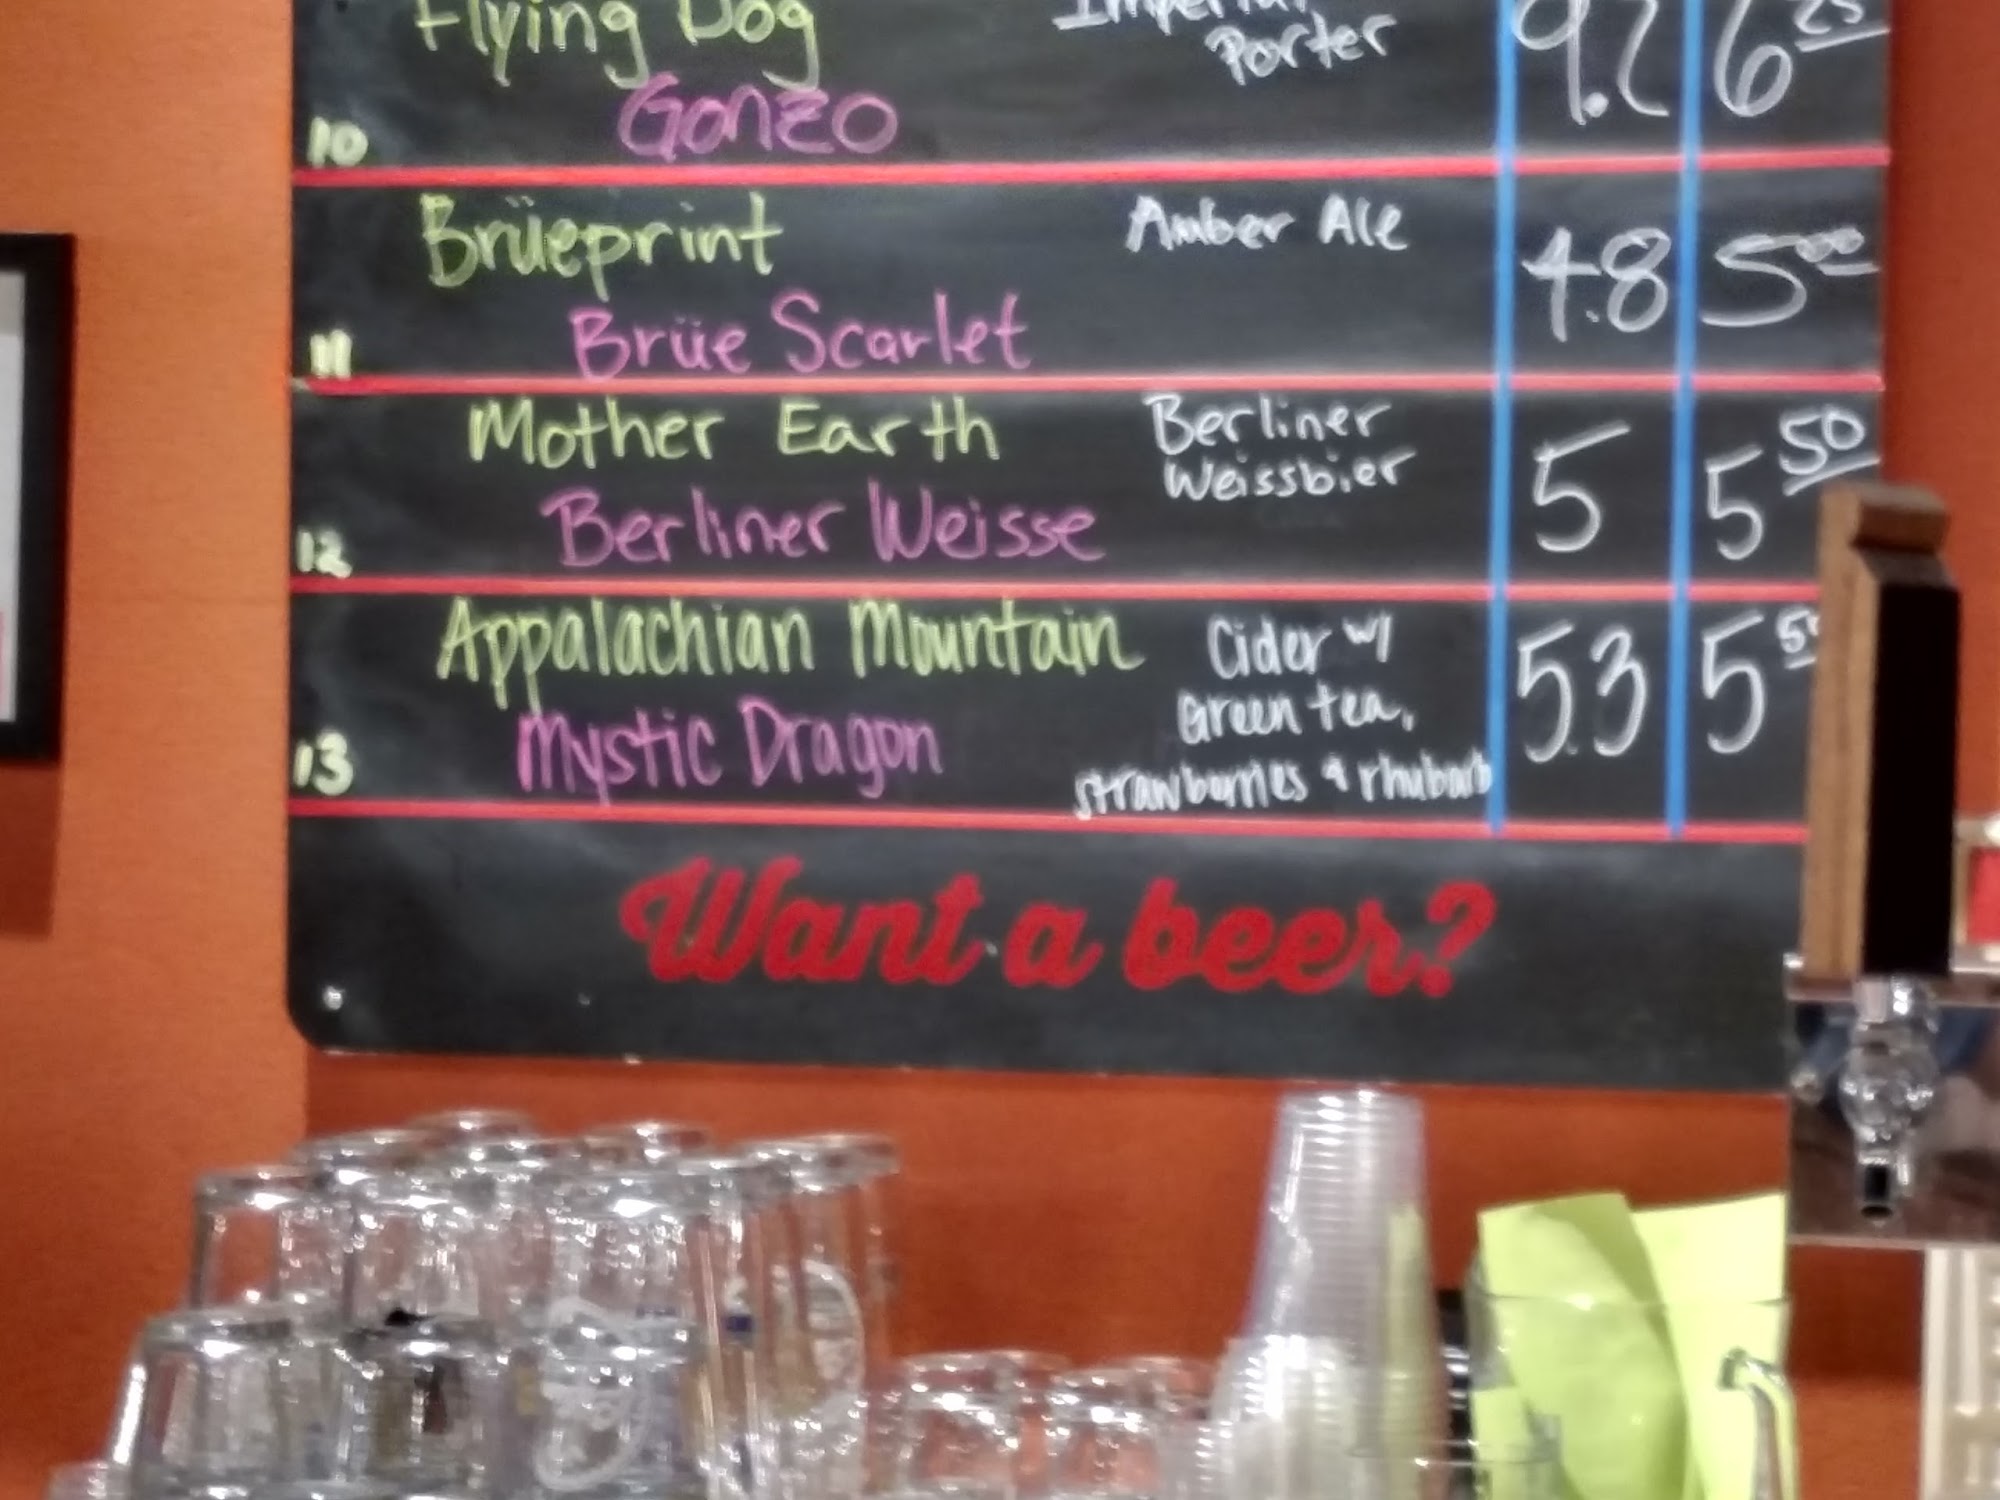 Flying Dog Imperial 9.2 6 25
Porter
10 Gonzo
Brüeprint Amber Ale 4.8 5 00
11 Brüe Scarlet
Mother Earth Berliner 5 5 50
Weissbier
12 Berliner Weisse
Appalachian Mountain Cider w/ 5.3 5
Green tea,
13 Mystic Dragon
strawberries & rhubarb
Want a beer?